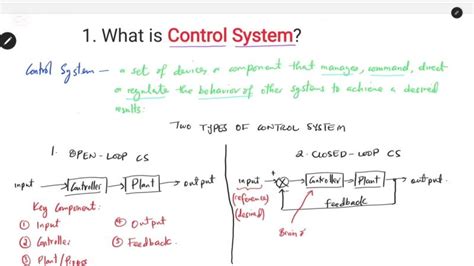 1. What is Control System?
Control System — a set of devices or component that manages, command, direct
or regulate the behavior of other systems to achieve a desired
results.
TWO TYPES OF CONTROL SYSTEM
1. OPEN-LOOP CS
2. CLOSED-LOOP CS
input Controller Plant output
input + - Controller Plant output
(reference)
(desired)
feedback
Brain
Key Component:
① Input
② Controller
③ Plant/Process
④ Output
⑤ Feedback